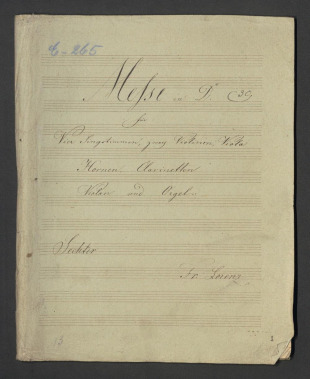 C-265
Messe in D. (39)
für
Vier Singstimmen, zwey Violinen, Viola
Hornen, Clarinetten
Violon und Orgel
Sechter
Fr. Lorenz
13